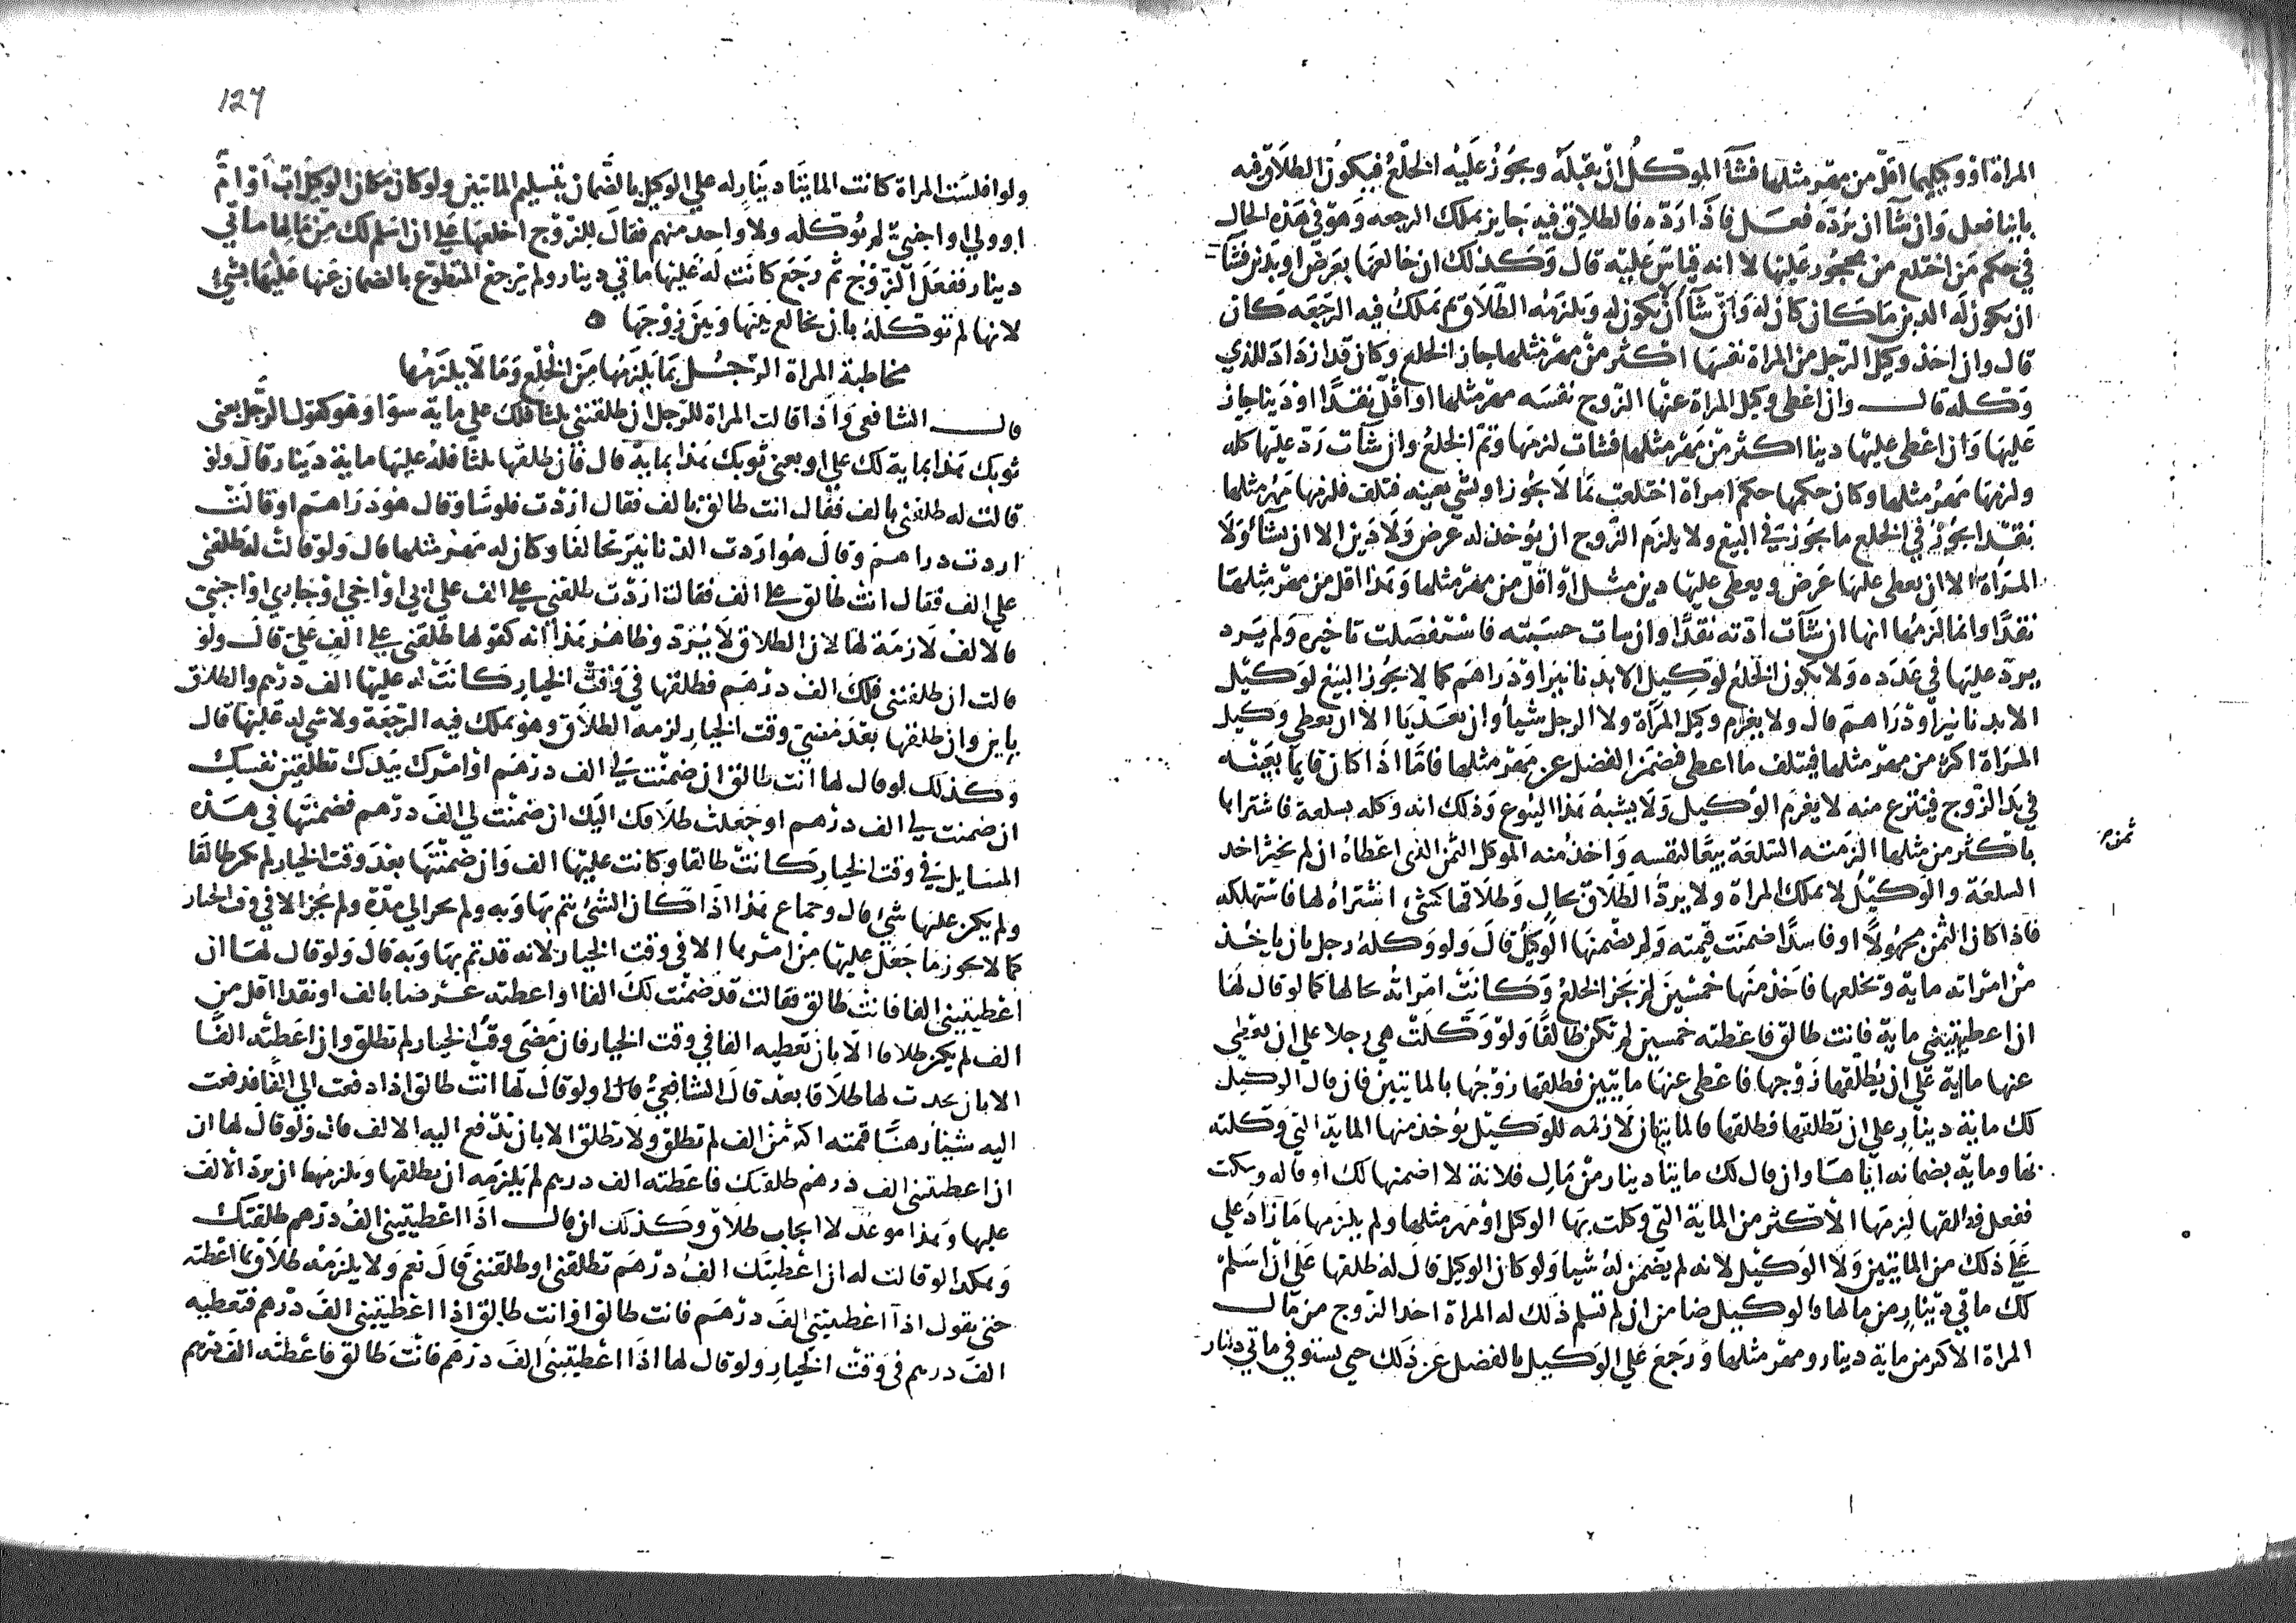 المراة او وكيلها اقل من مهر مثلها فشآ الموكل ان يقبله ويجوز عليه الخلع فيكون الطلاق فيه
باينا فعل وان شآ ان يرده فعل فاذا رده فالطلاق فيه جايز يملك الرجعه وهو في هذه الحال
في حكم من اختلع من محجور عليها لا انه قياس عليه قال وكذلك ان خالعها بعرض او بدين فشآ
ان يكون له الدين ما كان كان له وان شآ ان لا يكون له ويلزمه الطلاق يملك فيه الرجعه كان
قال وان اخذ وكيل الرجل من المراة نفسها اكثر من مهر مثلها جاز الخلع وكان قد ازداد للذي
وكله قال وان اعطى وكيل المراة عنها الزوج نفسه مهر مثلها او اقل نقدا او دينا جاز
عليها وان اعطى عليها دينا اكثر من مهر مثلها فشات لزمها وتم الخلع وان شآت رد عليها كله
ولزمها مهر مثلها وكان حكمها حكم امراة اختلعت بما لا يجوز او بشي بعينه فتلف فلزمها مهر مثلها
نقدا يجوز في الخلع ما يجوز في البيع ولا يلزم الزوج ان يؤخذ له عرض ولا دين الا ان يشآ ولا
المراة الا ان يعطى عليها عرض ويعطى عليها دين مثل او اقل من مهر مثلها وهذا اقل من مهر مثلها
نقدا وانما لزمها انها ان شآت ادته نقدا وان سات حبسته فاستفضلت تاخيره ولم يزد
يرد عليها في عدده ولا يكون الخلع لوكيل الا بدنانير او دراهم كما لا يجوز البيع لوكيل
الا بدنانير او دراهم قال ولا يغرم وكيل المراة ولا الرجل شيا وان تعديا الا ان يعطي وكيل
المراة اكثر من مهر مثلها فيتلف ما اعطى فضمن الفضل عن مهر مثلها فاما اذا كان قايما بعينه
في يد الزوج فينتزع منه لا يغرم الوكيل ولا يشبه هذا البيوع وذلك انه وكله بسلعة فاشتراها
باكثر من مثلها الزمته السلعة بيعا لنفسه واخذ منه الموكل الثمن الذي اعطاه ان لم يختر اخذ
ثمن
السلعة والوكيل لا يملك المراة ولا يرد الطلاق بحال وطلاقها كشئ اشتراه لها فاستهلكه
فاذا كان الثمن مجهولا او فاسدا ضمنت قيمته ولم يضمنها الوكيل قال ولو وكله رجل بان ياخذ
من امراته ماية ويخلعها فاخذ منها خمسين لم يجز الخلع وكانت امراته بحالها كما لو قال لها
ان اعطيتيني ماية فانت طالق فاعطته خمسين لم تكن طالقا ولو وكلت هي رجلا على ان يعطي
عنها ماية على ان يطلقها زوجها فاعطى عنها مايتين فطلقها زوجها بالمايتين فان قال الوكيل
لك ماية دينار علي ان تطلقها فطلقها فالمايتان لازمه للوكيل يؤخذ منها الماية التي وكلته
بها وماية بضمانه اياها وان قال لك مايتا دينار من مال فلانة لا اضمنها لك او قاله وسكت
ففعل فطلقها لزمها الاكثر من الماية التي وكلت بها الوكيل او مهر مثلها ولم يلزمها ما زاد علي
علي ذلك من المايتين ولا الوكيل لانه لم يضمن له شيا ولو كان الوكيل قال له طلقها على ان اسلم
لك مايتي دينار من مالها فالوكيل ضامن ان لم تسلم ذلك له المراة اخذ الزوج من مال
المراة الاكثر من ماية دينار ومهر مثلها ورجع على الوكيل بالفضل عن ذلك حتى يستوفي مايتي دينار
127
ولو افلست المراة كانت المايتا دينار له علي الوكيل بالضمان بتسليم المايتين ولو كان مكان الوكيل اب او ام
او ولي او اجنبي لم توكله ولا واحد منهم فقال للزوج اخلعها علي ان اسلم لك من مالها مايتي
دينار ففعل الزوج ثم رجع كانت له عليها مايتي دينار ولم يرجع المتطوع بالضمان عنها عليها بشئ
لانها لم توكله بان يخالع بينها وبين زوجها ه
مخاطبة المراة الرجل بما يلزمها من الخلع وما لا يلزمها
قال الشافعي واذا قالت المراة للرجل ان طلقتني ثلثا فلك علي ماية سوا وهو كقول الرجل بعني
ثوبك هذا بماية لك علي او بعني ثوبك هذا بماية قال فان طلقها ثلثا فله عليها ماية دينار قال ولو
قالت له طلقني بالف فقال انت طالق بالف فقال اردت فلوسا وقال هو دراهم او قالت
اردت دراهم وقال هو اردت الدنانير تحالفا وكان له مهر مثلها قال ولو قالت له طلقني
على الف فقال انت طالق على الف فقالت اردت طلقني على الف علي ابي او اخي او جاري او اجنبي
فالالف لازمة لها لان الطلاق لا يرد وظاهر هذا انه كقولها طلقني على الف علي قال ولو
قالت ان طلقتني فلك الف درهم فطلقها في وقت الخيار كانت له عليها الف درهم والطلاق
باين وان طلقها بعد مضي وقت الخيار لزمه الطلاق وهو يملك فيه الرجعة ولا شي له عليها قال
وكذلك لو قال لها انت طالق ان ضمنت لي الف درهم او امرك بيدك تطلقين نفسك
ان ضمنت لي الف درهم او جعلت طلاقك اليك ان ضمنت لي الف درهم فضمنتها في هذه
المسايل في وقت الخيار كانت طالقا وكانت عليها الف وان ضمنتها بعد وقت الخيار لم يكن طالقا
ولم يكن عليها شئ قال وجماع هذا اذا كان الشئ يتم بها وبه ولم يجز الى مدة ولم يجز الا في وقت الخيار
كما لا يجوز ما جعل عليها من امرها الا في وقت الخيار لانه قد تم بها وبه قال ولو قال لها ان
اعطيتيني الفا فانت طالق فقالت قد ضمنت لك الفا او اعطته عرضا بالف او نقدا اقل من
الف لم يكن طلاقا الا بان تعطيه الفا في وقت الخيار فان مضى وقت الخيار لم تطلق وان اعطته الفا
الا بان يحدث لها طلاقا بعد قال الشافعي قال ولو قال لها انت طالق اذا دفعت الي الفا فدفعت
اليه شيا رهنا قيمته اكثر من الف لم تطلق ولا تطلق الا بان تدفع اليه الالف قال ولو قال لها ان
ان اعطيتني الف درهم طلقتك فاعطته الف درهم لم يلزمه ان يطلقها ويلزمها ان يرد الالف
عليها وهذا موعد لا ايجاب طلاق وكذلك ان قال اذا اعطيتيني الف درهم طلقتك
وهكذا لو قالت له ان اعطيتك الف درهم تطلقني او طلقتني قال نعم ولا يلزمه طلاق بما اعطته
حتى يقول اذا اعطيتني الف درهم فانت طالق او انت طالق اذا اعطيتيني الف درهم فتعطيه
الف درهم في وقت الخيار ولو قال لها اذا اعطيتيني الف درهم فانت طالق فاعطته الف درهم